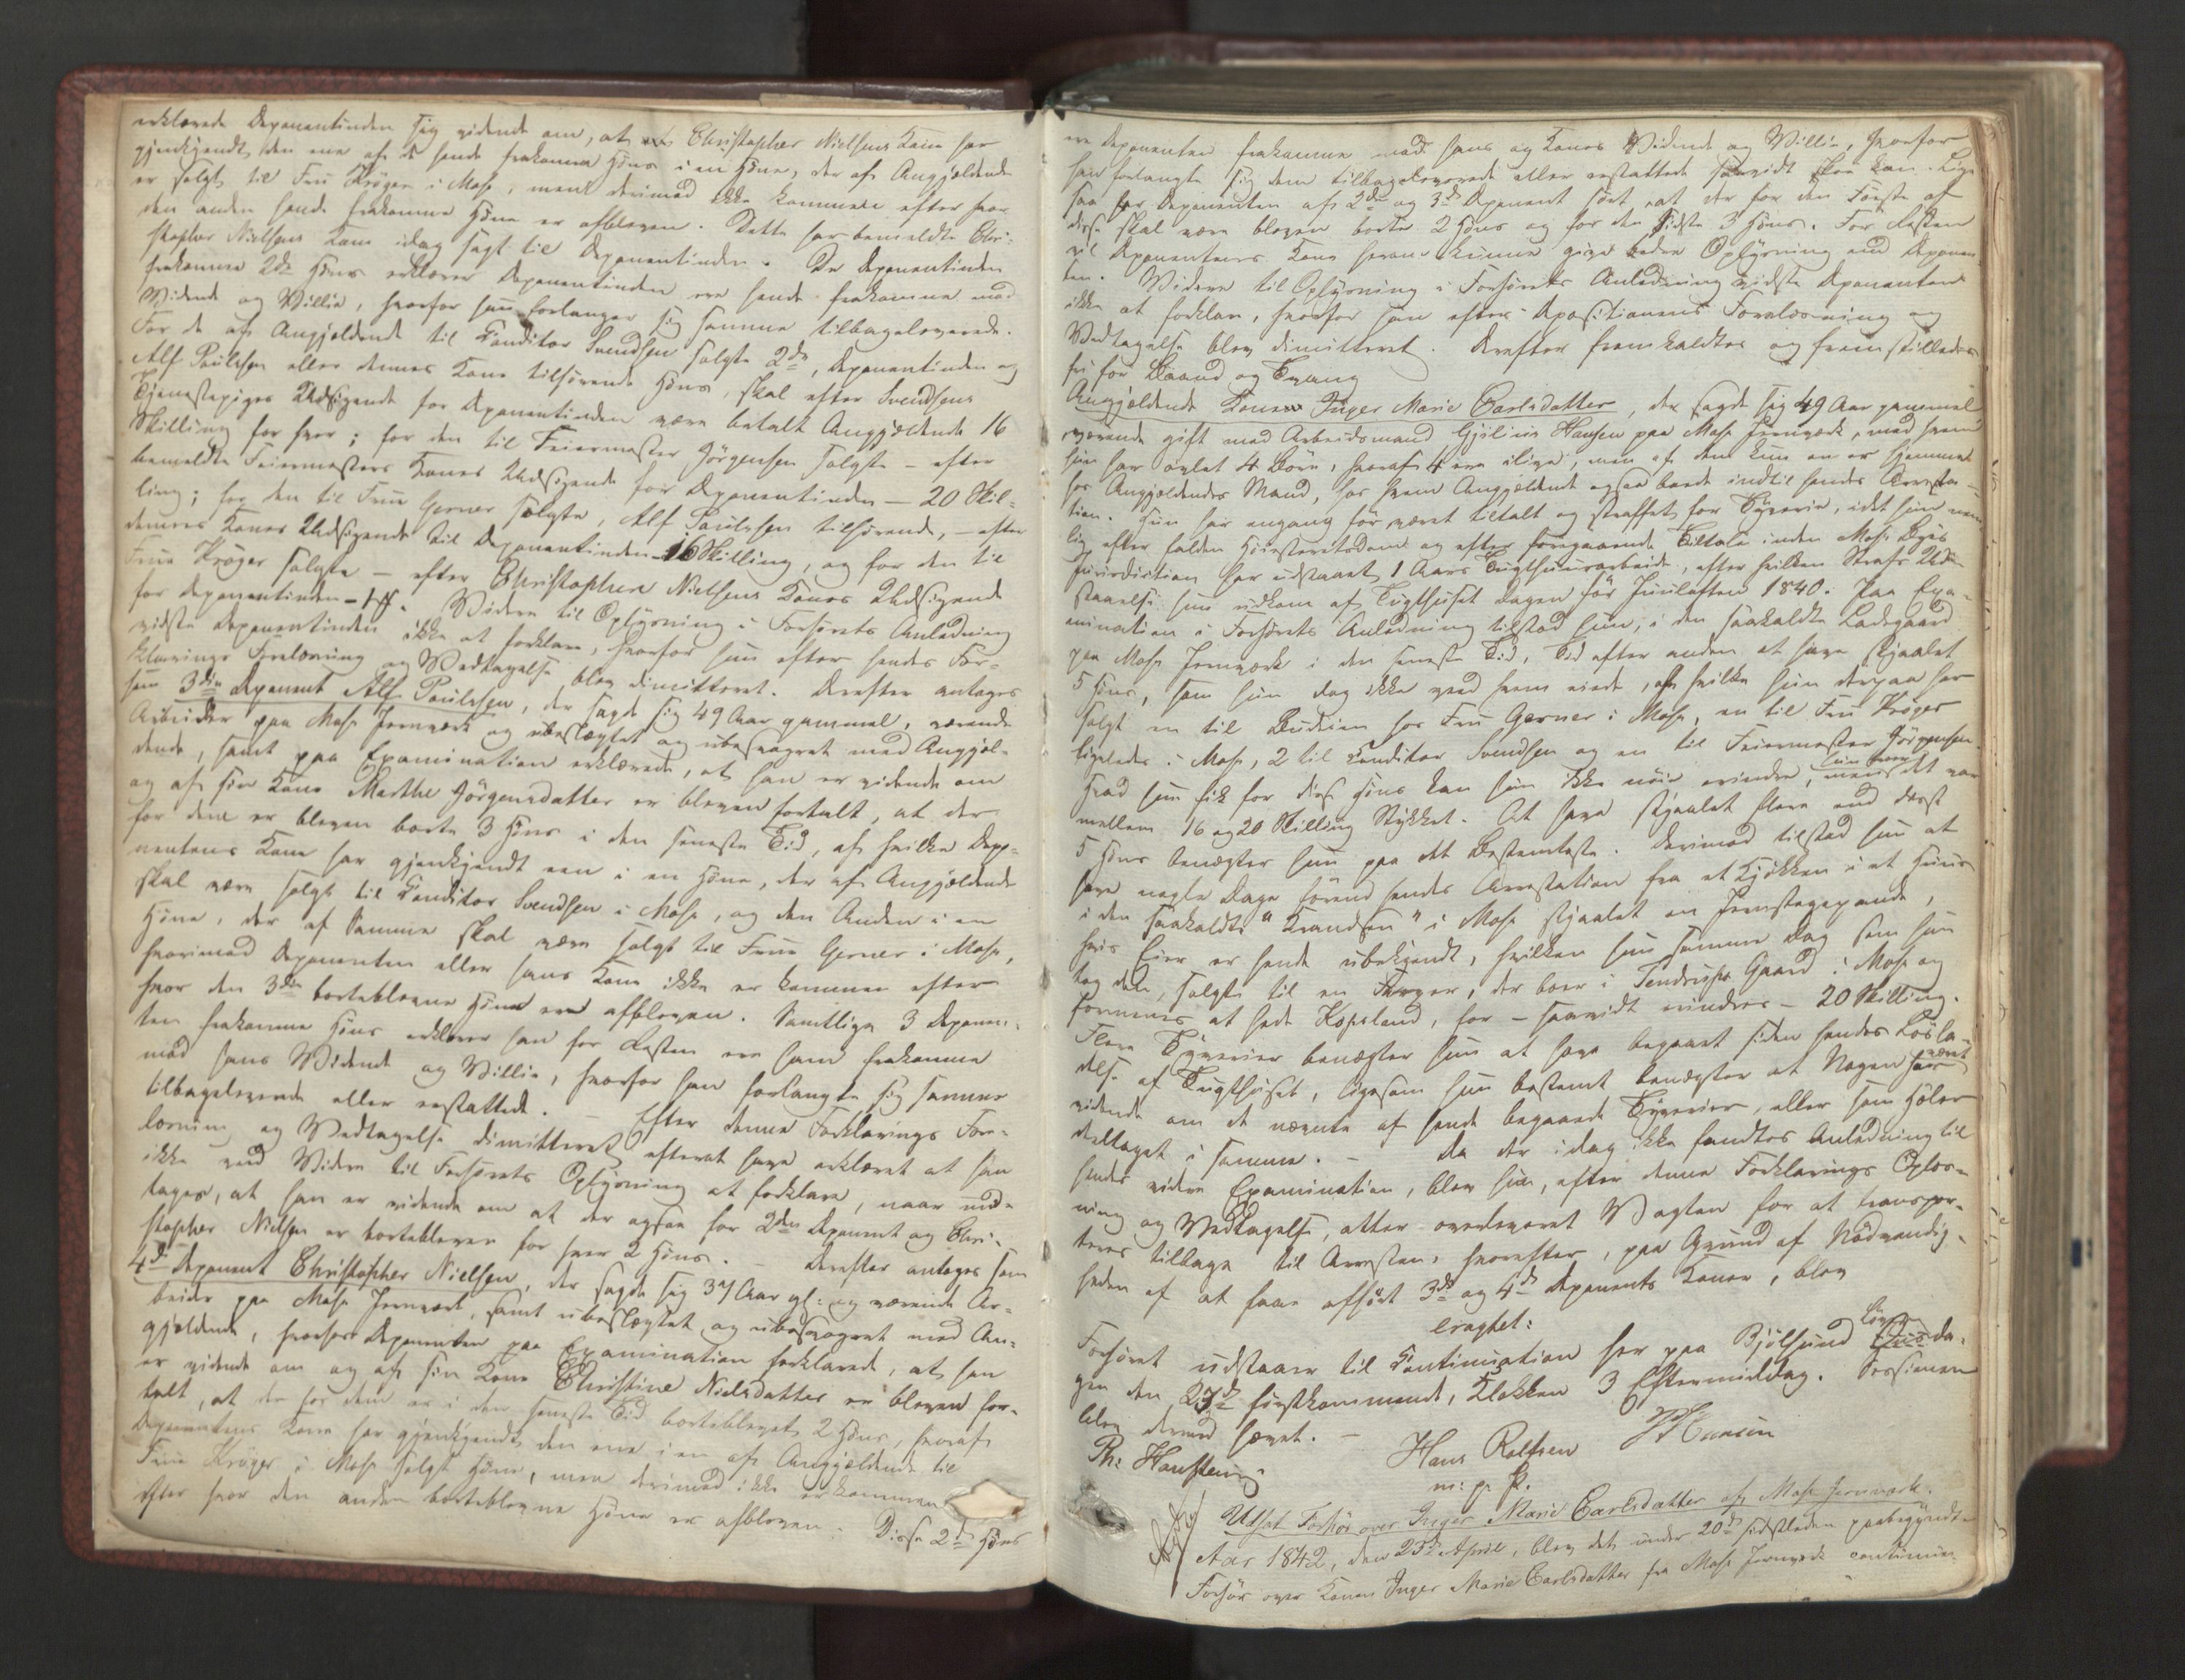 erklærede Deponentinden sig vidende om, at Christopher Nielsens Kone har
gjenkjendt den ene af de hende frakomne Høns i en Høne, der af Angjældende
er solgt til Fru Krøger i Moss, men derimod ikke kommen efter hvor
den anden hende frakomne Høne er afbleven. Dette har bemeldte Chri-
stopher Nielsens Kone idag sagt til Deponentinden. De Deponentinden
frakomne 2de Høns erklærer Deponentinden ere hende frakomne mod
Vidende og Villie, hvorfor hun forlanger sig samme tilbageleverede.
For de af Angjældende til Conditor Svendsen solgte 2de, Deponentinden og
Alf Paulsen eller dennes Kone tilhørende Høns, skal efter Svendsens
Tjenestepiges Udsigende for Deponentinden være betalt Angjældende 16
Skilling for hver; for den til Feiermester Jørgensen solgte – efter
bemeldte Feiermesters Kones Udsigende for Deponentinden – 20 Skil-
ling; for den til Frue Gerner solgte, Alf Paulsen tilhørende, – efter
dennes Kones Udsigende til Deponentinden 16 Skilling, og for den til
Frue Krøger solgte – efter Christopher Nielsens Kones Udsigende
for Deponentinden – Videre til Oplysning i Forhørets Anledning
vidste Deponentinden ikke at forklare, hvorfor hun efter hendes For-
klarings Forelæsning og Vedtagelse blev dimitteret. Derefter antoges
som 3die Deponent Alf Paulsen, der sagde sig 49 Aar gammel, værende
Arbeider paa Moss Jernværk og ubeslægtet og ubesvogret med Angjæl-
dende, samt paa Examination erklærede, at han er vidende om
og af sin Kone Marthe Jørgensdatter er bleven fortalt, at der
for dem er bleven borte 3 Høns i den seneste Tid, af hvilke Depo-
nentens Kone har gjenkjendt een i en Høne, der af Angjældende
skal være solgt til Conditor Svendsen i Moss, og den Anden i en
Høne, der af Samme skal være solgt til Frue Gerner i Moss,
hvorimod Deponenten eller hans Kone ikke er kommen efter
hvor den 3die bortblevne Høne er afbleven. Samtlige 3 Deponen-
ten frakomne Høns erklærer han for Resten ere ham frakomne
mod hans Vidende og Villie, hvorfor han forlangte sig samme
tilbageleverede eller erstattede. – Efter denne Forklarings Fore-
læsning og Vedtagelse dimitteret efterat have erklæret at han
ikke veed Videre til Forhørets Oplysning at forklare, naar und-
tages, at han er vidende om at der ogsaa for 2den Deponent og Chri-
stopher Nielsen er bortebleven for hver 2 Høns. – Derefter antoges som
4de Deponent Christopher Nielsen, der sagde sig 37 Aar gl: og værende Ar-
beider paa Moss Jernværk, samt ubeslægtet og ubesvogret med An-
gjældende, hvorhos Deponenten paa Examination forklarede, at han
er vidende om og af sin Kone Christine Nielsdatter er bleven for-
talt, at der for dem er i den seneste Tid bortblevet 2 Høns, hvoraf
Deponentens Kone har gjenkjendt den ene i en af Angjældende til
Frue Krøger i Moss solgt Høne, men derimod ikke er kommen
efter hvor den anden bortblevne Høne er afbleven. Disse 2de Høns
ere Deponenten frakomne mod hans og Kones Vidende og Villie, hvorfor
han forlangte sig dem tilbageleverede eller erstattede saavidt skee kan. Lige
saa har Deponenten af 2den og 3die Deponent hørt, at der for den Første af
disse skal være bleven borte 2 Høns og for den Sidste 3 Høns. For Resten
vil Deponentens Kone herom kunne give bedre Oplysning end Deponen-
ten. Videre til Oplysning i Forhørets Anledning vidste Deponenten
ikke at forklare, hvorfor han efter Depositionens Forelæsning og
Vedtagelse blev dimitteret. Derefter fremkaldtes og fremstilledes
fri for Baand og Tvang
Angjældende Konen Inger Marie Carlsdatter, der sagde sig 49 Aar gammel
værende gift med Arbeidsmand Hansen paa Moss Jernværk, med hvem
hun har avlet 4 Børn, hvoraf 4 ere ilive, men af dem kun en er hjemme
hos Angjældendes Mand, hos hvem Angjældende ogsaa boede indtil hendes Arresta-
tion. Hun har engang før været tiltalt og straffet for Tyverie, idet hun nem-
lig efter falden Høiesteretsdom og efter foregaaende Tiltale inden Moss Byes
Jurisdiction har udstaaet 1 Aars Tugthuusarbeide, efter hvilken Strafs Ud-
staaelse hun udkom af Tugthuset dagen før Juulaften 1840. Paa Exa-
mination i Forhørets Anledning tilstod hun, i den saakaldte Ladegaard
paa Moss Jernværk i den seneste Tid, Tid efter anden at have stjaalet
5 Høns, som hun dog ikke veed hvem eiede, af hvilke hun derpaa har
solgt en til Budeien hos Fru Gerner i Moss, en til Fru Krøger
ligeledes i Moss, 2 til Conditor Svendsen og en til Feiermester Jørgensen.
Hvad hun fik for disse Høns kan hun ikke nøie erindre, men det var
mellem 16 og 20 Skilling Stykket. At have stjaalet flere end disse
5 Høns benægter hun paa det Bestemteste. Derimod tilstod hun at
have nogle Dage førend hendes Arrestation fra et Kjøkken i et Huus
i den saakaldte "Krandsen" i Moss stjaalet en Jernstegepande,
hvis Eier er hende ubekjendt, hvilken hun samme Dag som hun
tog den, solgte til en Farver, der boer i Gaard i Moss og
formenes at hede Kopland, for – saavidt erindres – 20 Skilling.
Flere Tyverier benægter hun at have begaaet siden hendes Løsla-
delse af Tugthuset, ligesom hun bestemt benægter at Nogen har været
vidende om de nævnte af hende begaaede Tyverier, eller som Hæler
deeltaget i samme. – Da der idag ikke fandtes Anledning til
hendes videre Examination, blev hun, efter denne Forklarings Oplæs-
ning og Vedtagelse, atter overleveret Vagten for at transpor-
teres tilbage til Arresten, hvorefter, paa Grund af Nødvendig-
heden af at faae afhørt 3die og 4de Deponents Koner, blev
eragtet:
Forhøret udstaaer til Continuation her paa Bjølsund Løver-
gen den 23de førstkommende, Klokken 3 Eftermiddag. Sessionen
blev dermed hævet. –
Ph: Hansteen Hans Rolfsen
m: p: P.
Udsat Forhør over Inger Marie Carlsdatter af Moss Jernværk.
Aar 1842, den 23de April, blev det under 20de sidstleden paabegyndte
Forhør over Konen Inger Marie Carlsdatter fra Moss Jernværk continue-